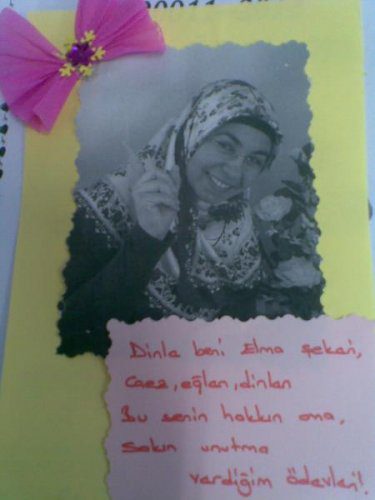 Dinle beni Elma şekeri,
Gez, eğlen, dinlen
Bu senin hakkın ama,
Sakın unutma
verdiğim ödevleri!